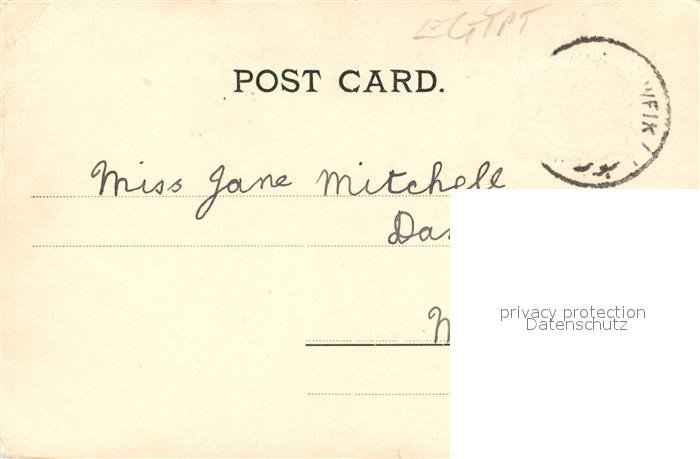 EGYPT
POST CARD.
Miss Jane Mitchell
privacy protection
Datenschutz